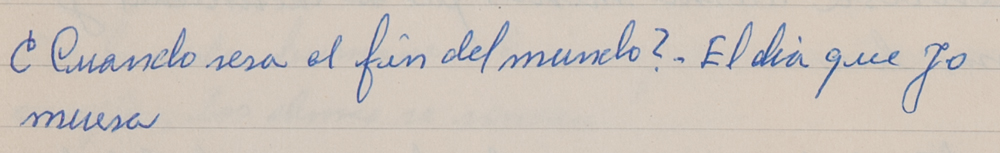 ¿Cuando sera el fin del mundo?. El dia que yo
muera